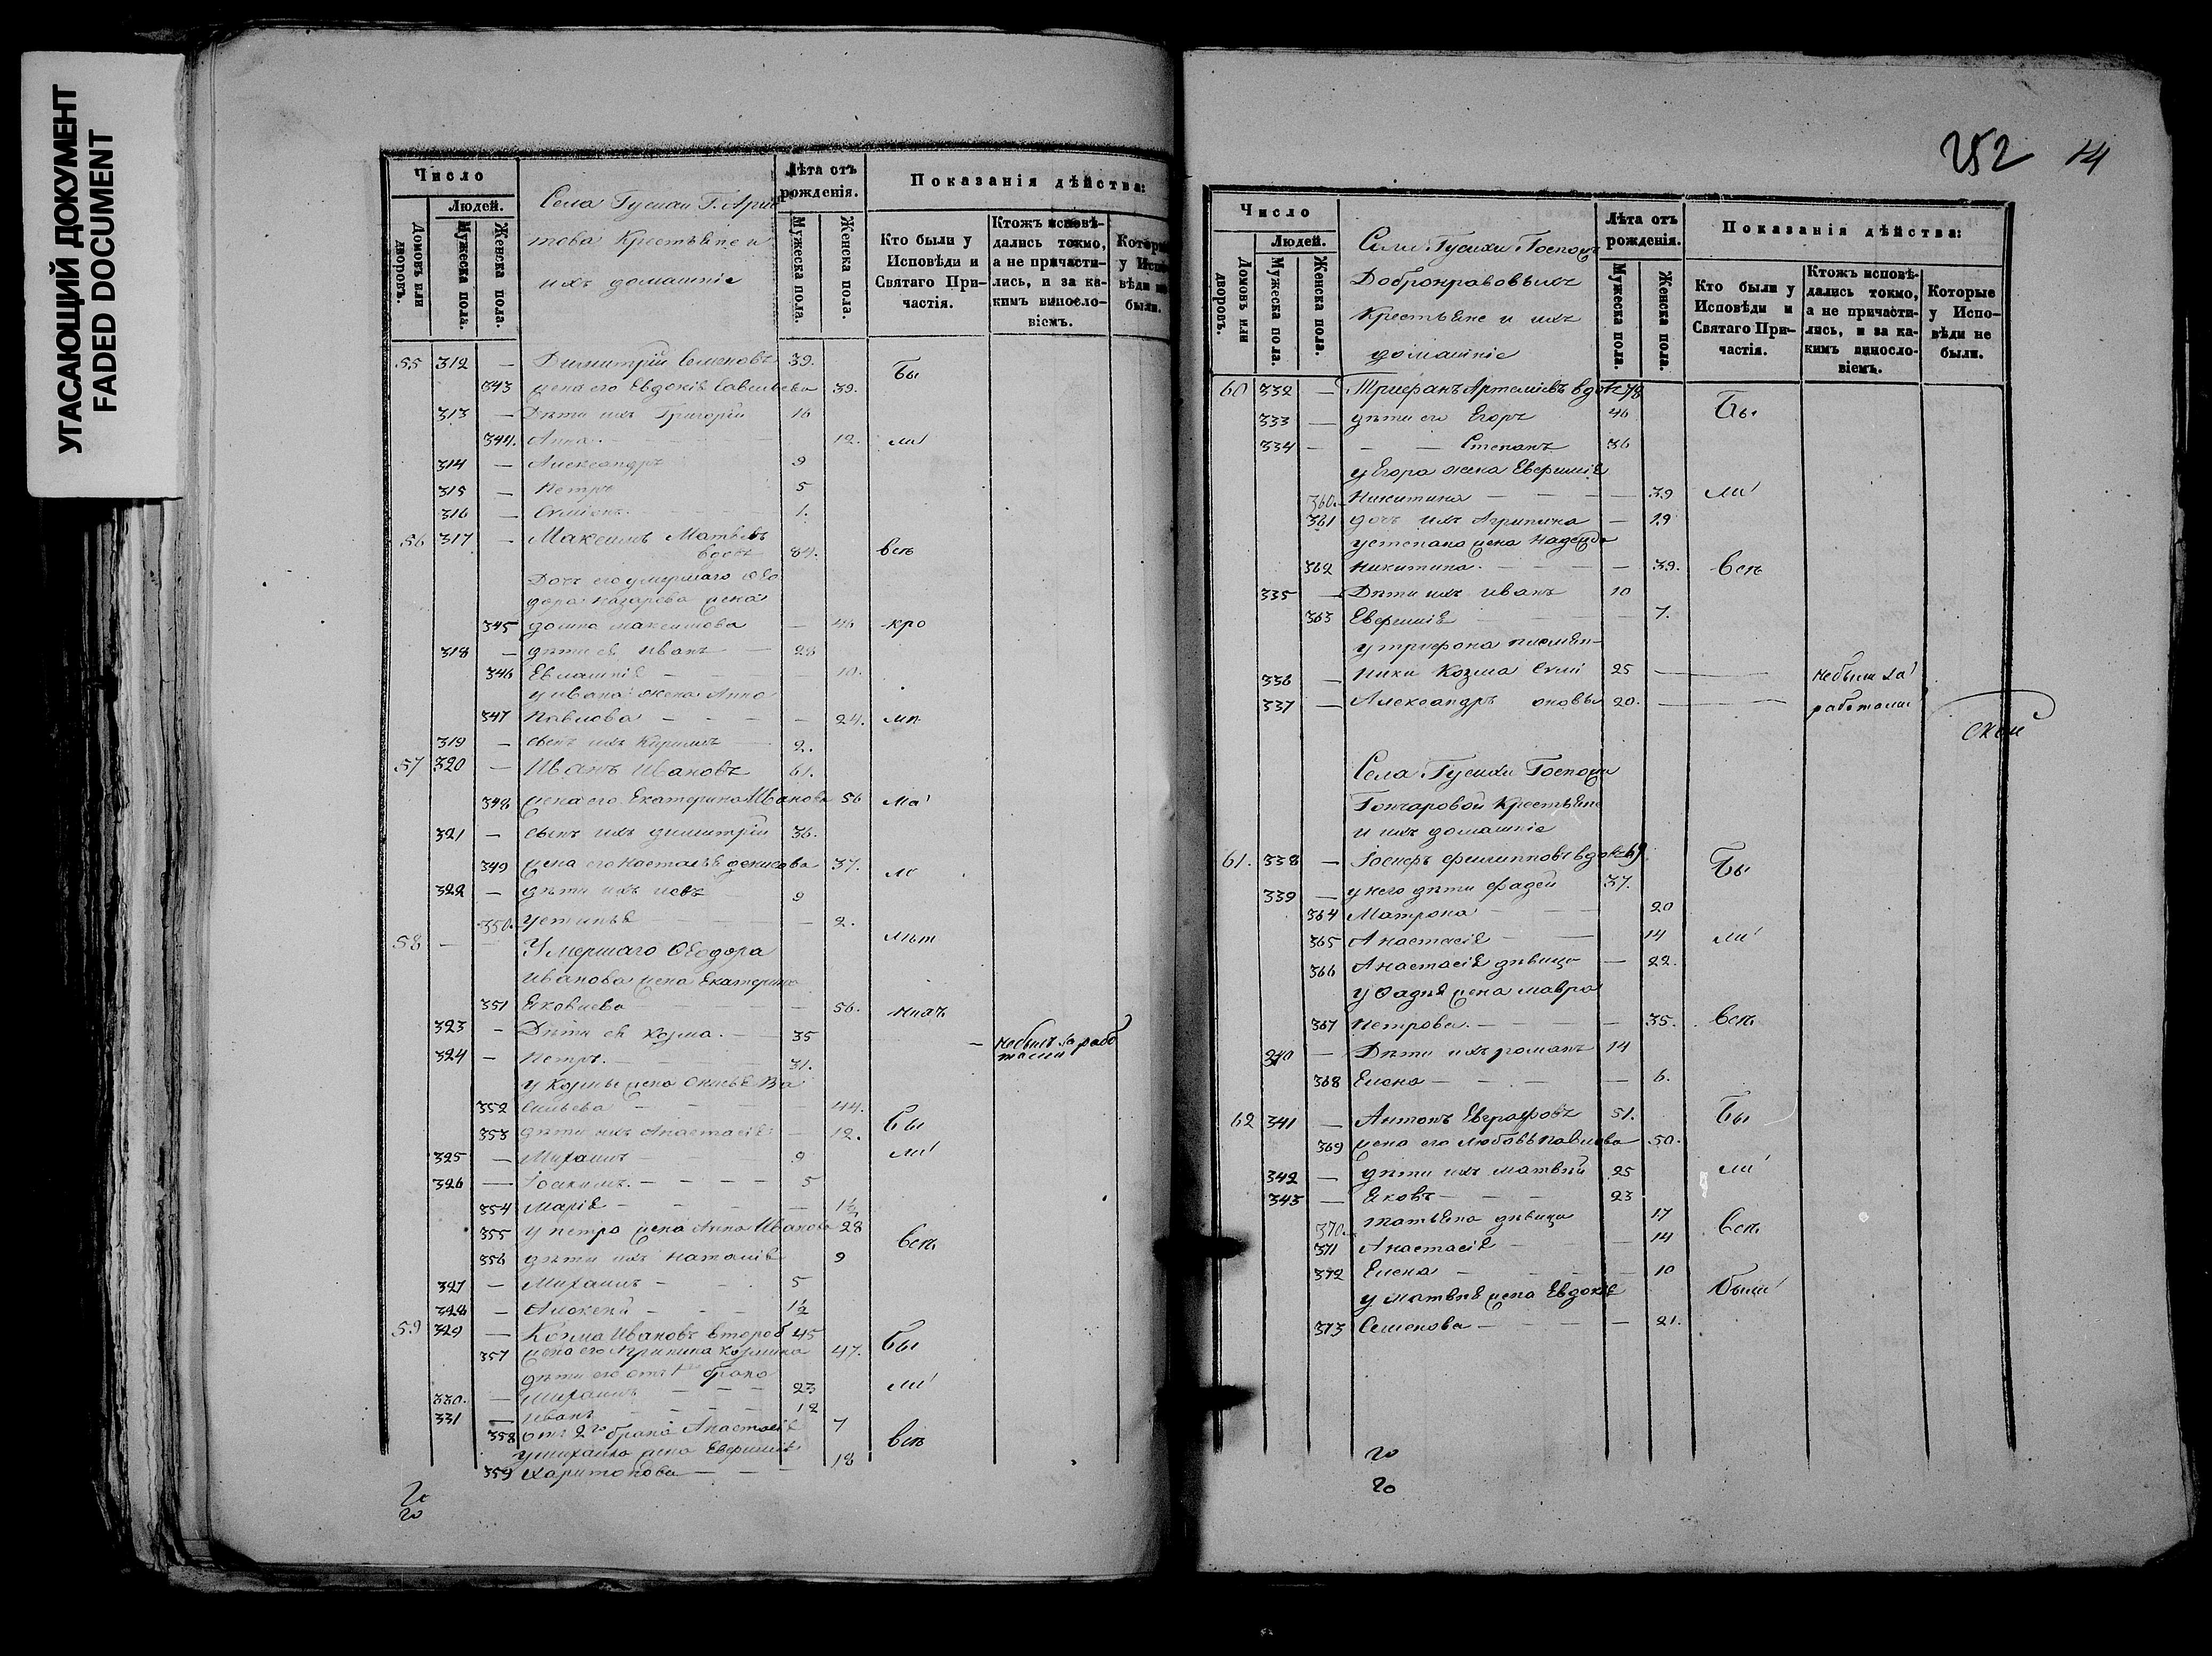 УГАСАЮЩИЙ ДОКУМЕНТ
FADED DOCUMENT
Число
Людей.
Домовъ или дворовъ.
Мужеска пола.
Женска пола.
Села Гусихи Г. Арит
това Крестьяне и
ихъ домашніе
Лѣта отъ рожденія.
Мужеска пола.
Женска пола.
Показанія дѣйства:
Кто были у Исповѣди и Святаго Причастія.
Ктожъ исповѣдались токмо, а не причастились, и за какимъ винословіемъ.
55 312 — Димитрій Семеновъ 39. Бы
343 жена его Евдокія Савельева 39.
313 — Дѣти ихъ Григорій 16
344. Анна 12. ли
314 — Александръ 9
315 — Петръ 5
316 — 1.
56 317 — Максимъ Матвѣевъ
вдовъ 84. всѣ
дора Назарова жена
345 Домна Максимова — 46 -кро
318 — дѣти ея Иванъ — 28
346 Евлампія — 10.
у Ивана жена Анна
347 Павлова — 24.
319 — сынъ ихъ Кирилъ — 2.
57 320 — Иванъ Ивановъ 61.
348 жена его Екатерина Иванова 56
321 — сынъ ихъ Димитрій 36.
349 жена его Наталья Денисова 37.
322 — дѣти ихъ 9
350. Устинья — 2.
58 — Умершаго Ѳеодора
Иванова жена Екатерина
351 Яковлева — 56.
323 — Дѣти ея Козма. — 35
324 — Петръ. — 31. — небылъ за рабо
тами
у Козмы жена Ва
352 сильева — 44.
353 дѣти ихъ Анастасія — 12. Бы
325 — Михаилъ 9 ли
326 — Іоакимъ. — 5
354 Марія — 1½
355 у Петра жена Анна Иванова 28
356 дѣти ихъ Наталія 9 всѣ
327 — Михаилъ — 5
328 — Алексей — 1½
59 329 — Козма Ивановъ второй 45
357 жена его Агрипина Козмина 47. Бы
дѣти его отъ 1го брака
330. — Михаилъ — 23 ли
331 — Иванъ — 12
358 отъ 2го брака Анастасія 7
у Михаила жена Евфимія всѣ
359 Харитонова — 18
20
20
252 14
Число
Людей.
Домовъ или дворовъ.
Мужеска пола.
Женска пола.
Села Гусихи Господъ
Добронравовыхъ
Крестьяне и ихъ
домашніе
Лѣта отъ рожденія.
Мужеска пола.
Женска пола.
Показанія дѣйства:
Кто были у Исповѣди и Святаго Причастія.
Ктожъ исповѣдались токмо, а не причастились, и за какимъ винословіемъ.
Которые у Исповѣди не были.
60 332 — Трифанъ Артемьевъ вдовъ 78
333 — дѣти его Егоръ 46 Бы
334 — — Степанъ 36
у Егора жена Евфимія
360. Никитина — 39 ли
361 дочь ихъ Агрипина — 19
у Степана жена Надежда
362 Никитина. — 39. всѣ
335 — Дѣти ихъ Иванъ 10
363 Евфимія 7.
у Трифона племян-
336 — ники Козма Сими 25 — небыли за
337 — Александръ оновы 20. — работами
Села Гусихи Госпожи
Гончаровой Крестьяне
и ихъ домашніе
61. 338 — Іосифъ Филипповъ вдовъ 69
339 — у него дѣти Фадей 37. Бы
364 Матрона — 20
365 Анастасія — 14 ли
366 Анастасія дѣвица — 22.
у Фадея жена Мавра
367 Петрова. — 35. всѣ
340 — Дѣти ихъ Романъ 14
368 Елена — 6.
62 341 — Антонъ Евграфовъ 51. Бы
369 жена его Любовь Павлова 50.
342 — дѣти ихъ Матвѣй 25 ли
343 — Яковъ — 23
370. Татьяна дѣвица 17
371 Анастасія — 14 всѣ
372 Елена — 10
у Матвѣя жена Евдокія были
373 Семенова — 21.
20
20